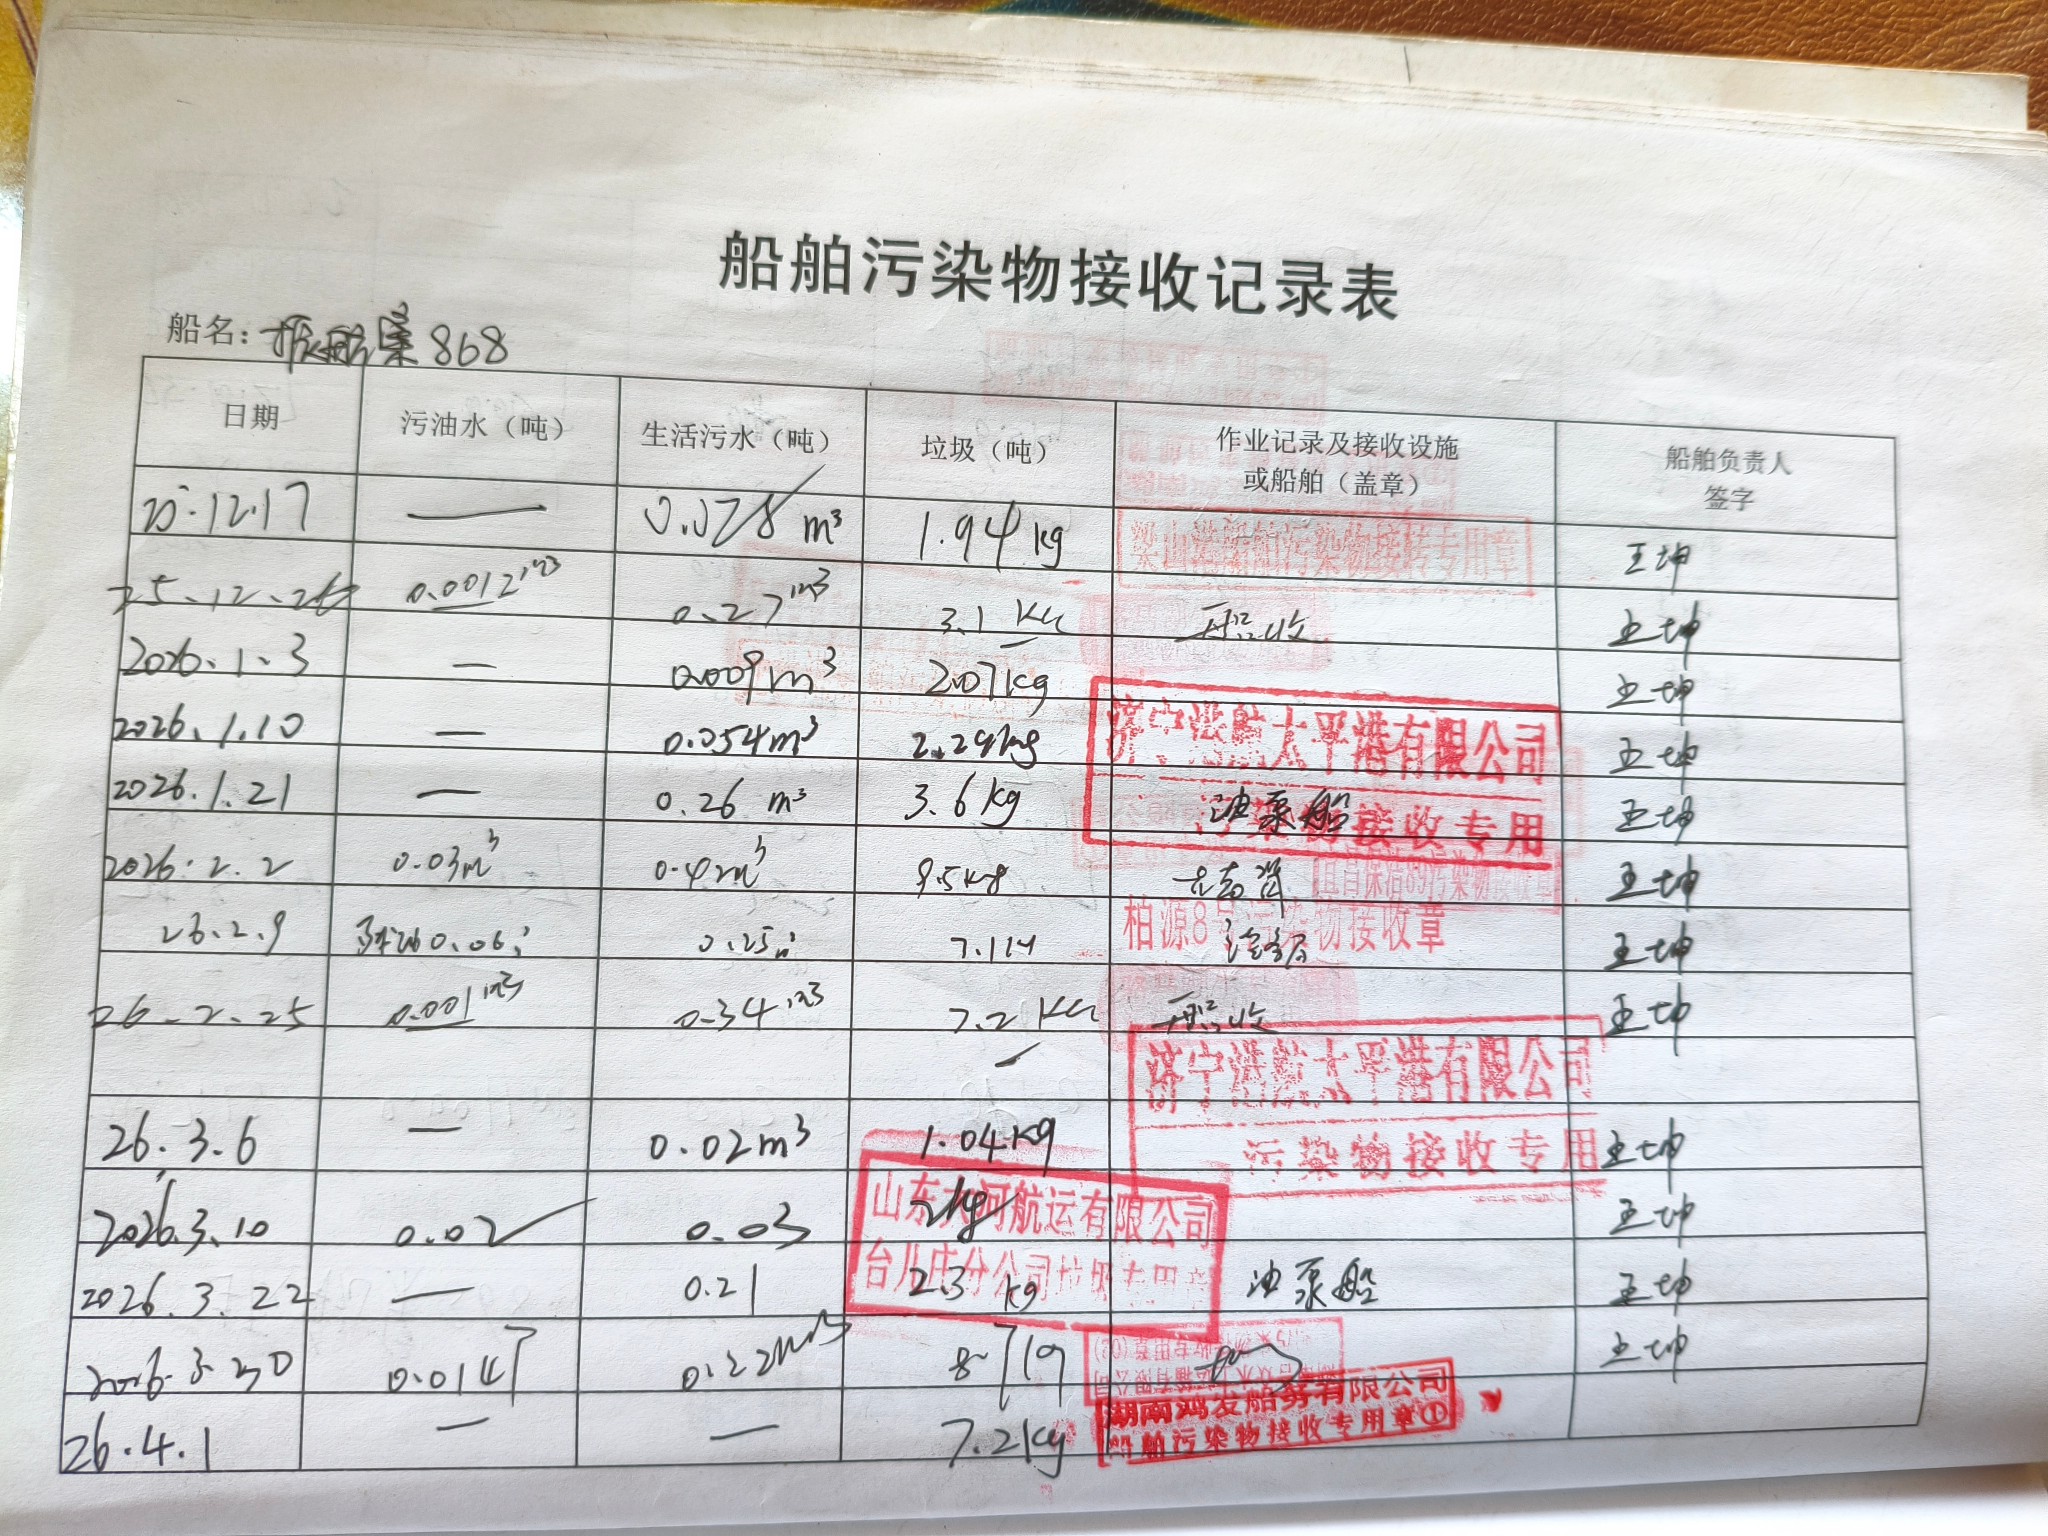 船舶污染物接收记录表
船名：振航集868
日期 污油水（吨） 生活污水（吨） 垃圾（吨） 作业记录及接收设施或船舶（盖章） 船舶负责人签字
25.12.17 — 0.028 m³ 1.94 kg 梁山港船舶污染物接转专用章 王坤
25.12.26 0.0012m³ 0.27m³ 3.1 KG 王坤
2026.1.3 — 0.009m³ 2.07kg 王坤
2026.1.10 — 0.054m³ 2.29kg 济宁港航太平港有限公司 王坤
2026.1.21 — 0.26 m³ 3.6kg 油泵船 污染物接收专用 王坤
2026.2.2 0.03m³ 0.42m³ 9.5kg 宜昌保洁89污染物接收章 王坤
26.2.9 0.06 0.25 7.1 柏源8号污染物接收章 王坤
26.2.25 0.001m³ 0.34m³ 7.2KG 王坤
济宁港航太平港有限公司
26.3.6 — 0.02m³ 1.04kg 污染物接收专用 王坤
2026.3.10 0.02 0.03 2kg 山东大河航运有限公司 王坤
台儿庄分公司垃圾专用章
2026.3.22 — 0.21 2.3kg 油泵船 王坤
2026.3.30 0.014T 0.22m³ 王坤
湖南鸿发船务有限公司
26.4.1 — — 7.2kg 船舶污染物接收专用章①